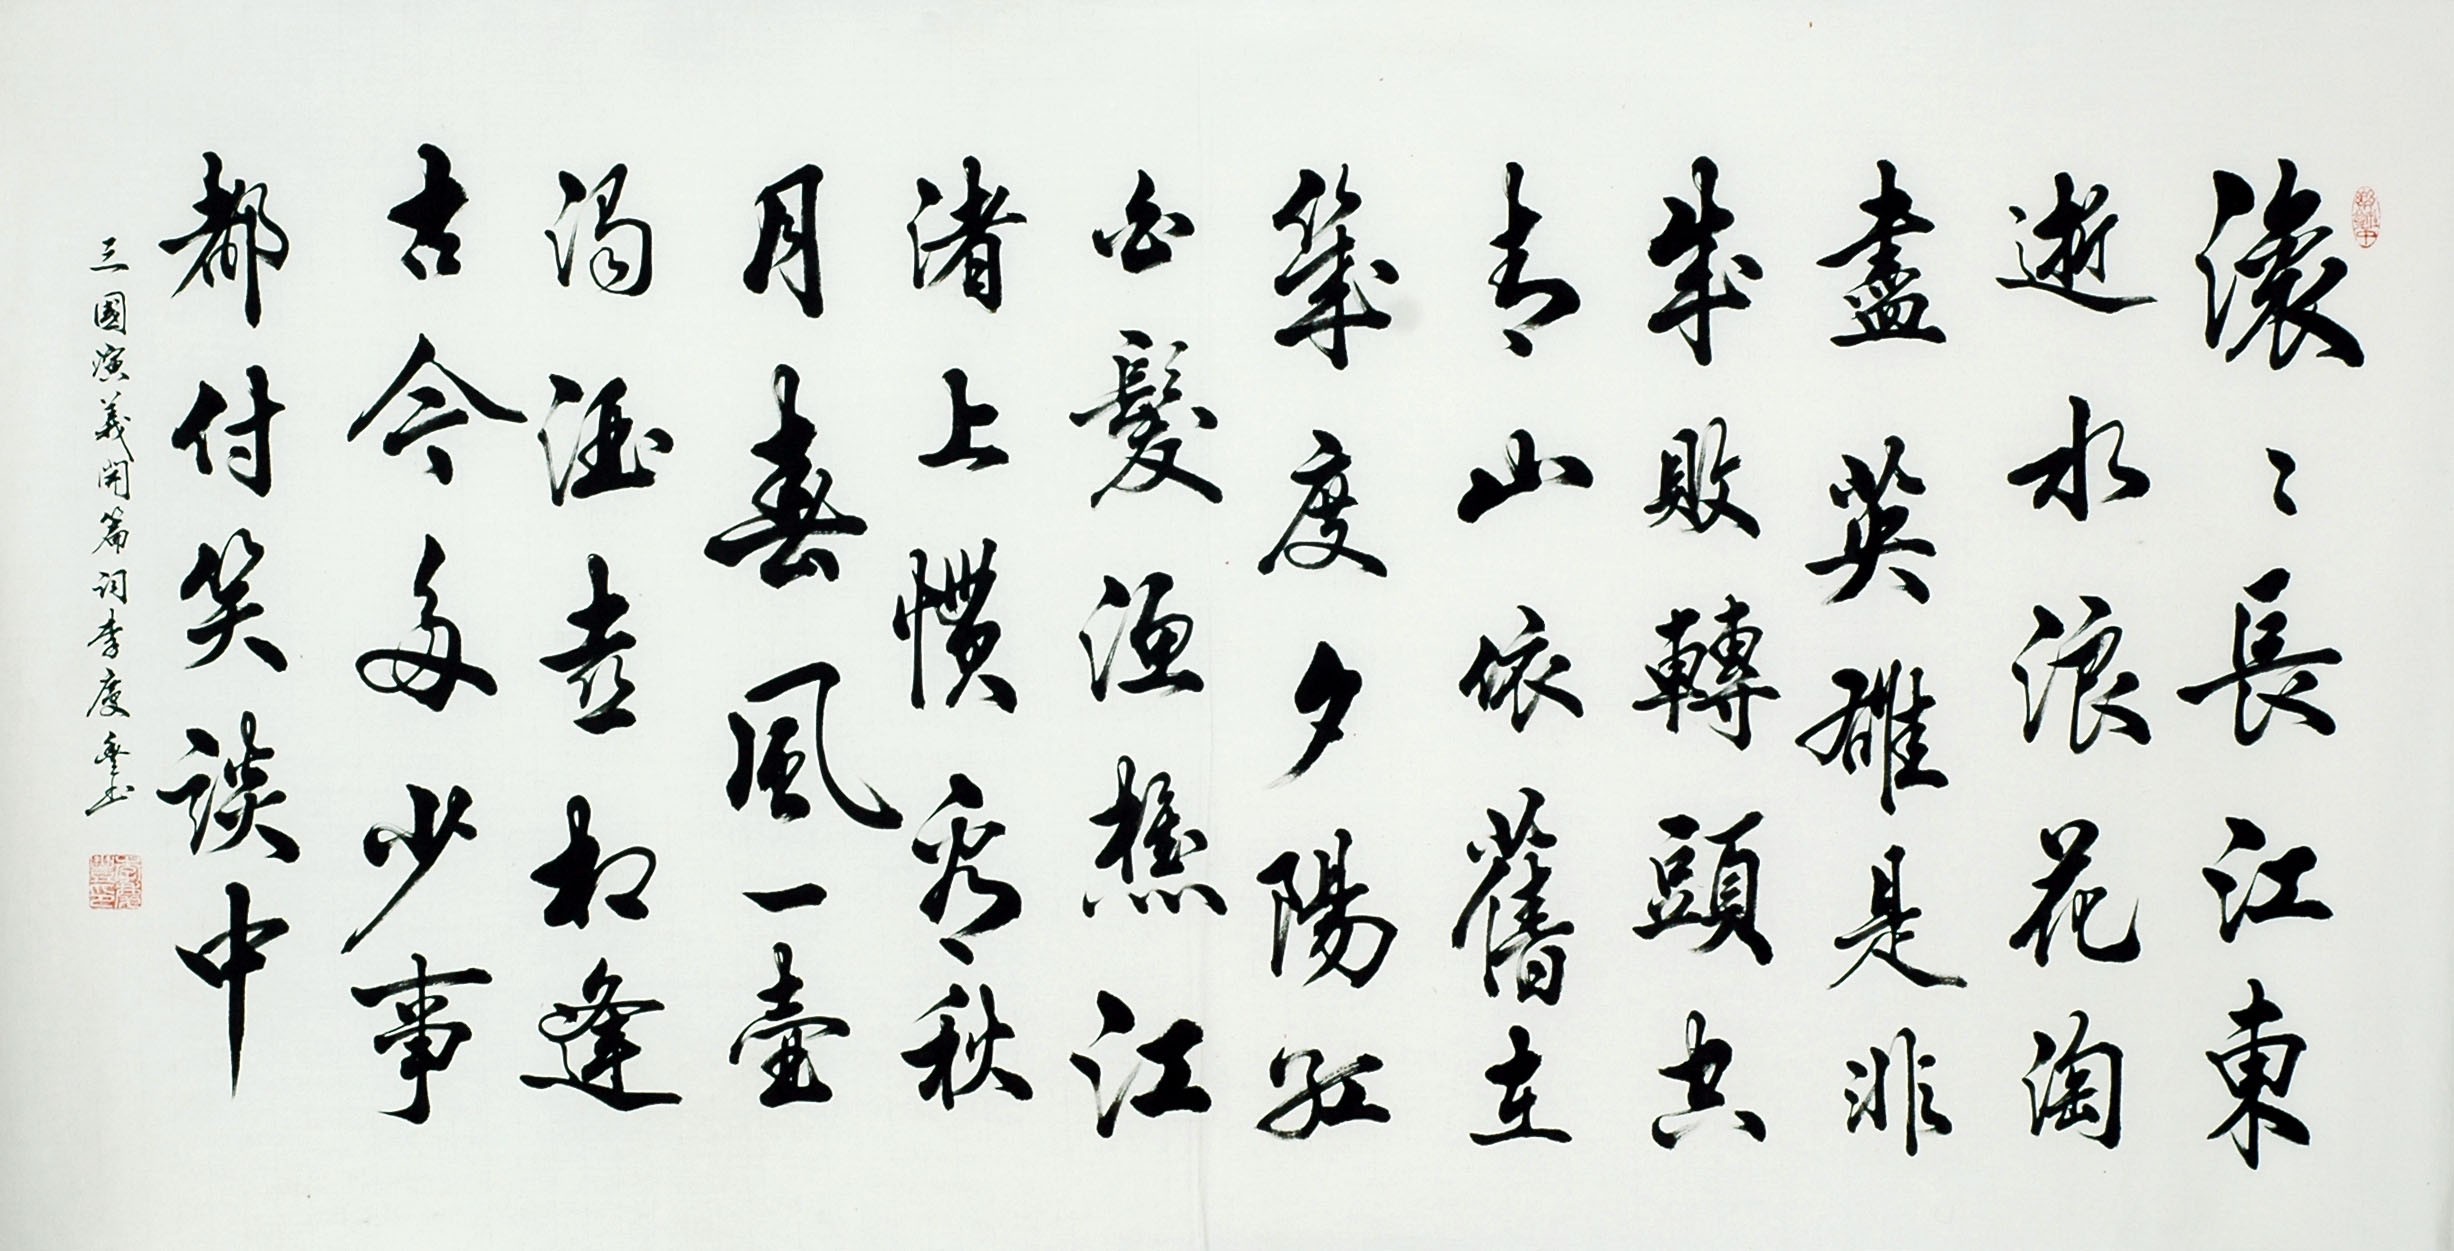 滚〻長江東
逝水浪花淘
盡英雄是非
成敗轉頭空
青山依舊在
幾度夕陽紅
白髮漁樵江
渚上慣看秋
月春風一壺
濁酒喜相逢
古今多少事
都付笑談中
三國演義開篇詞李慶豐書